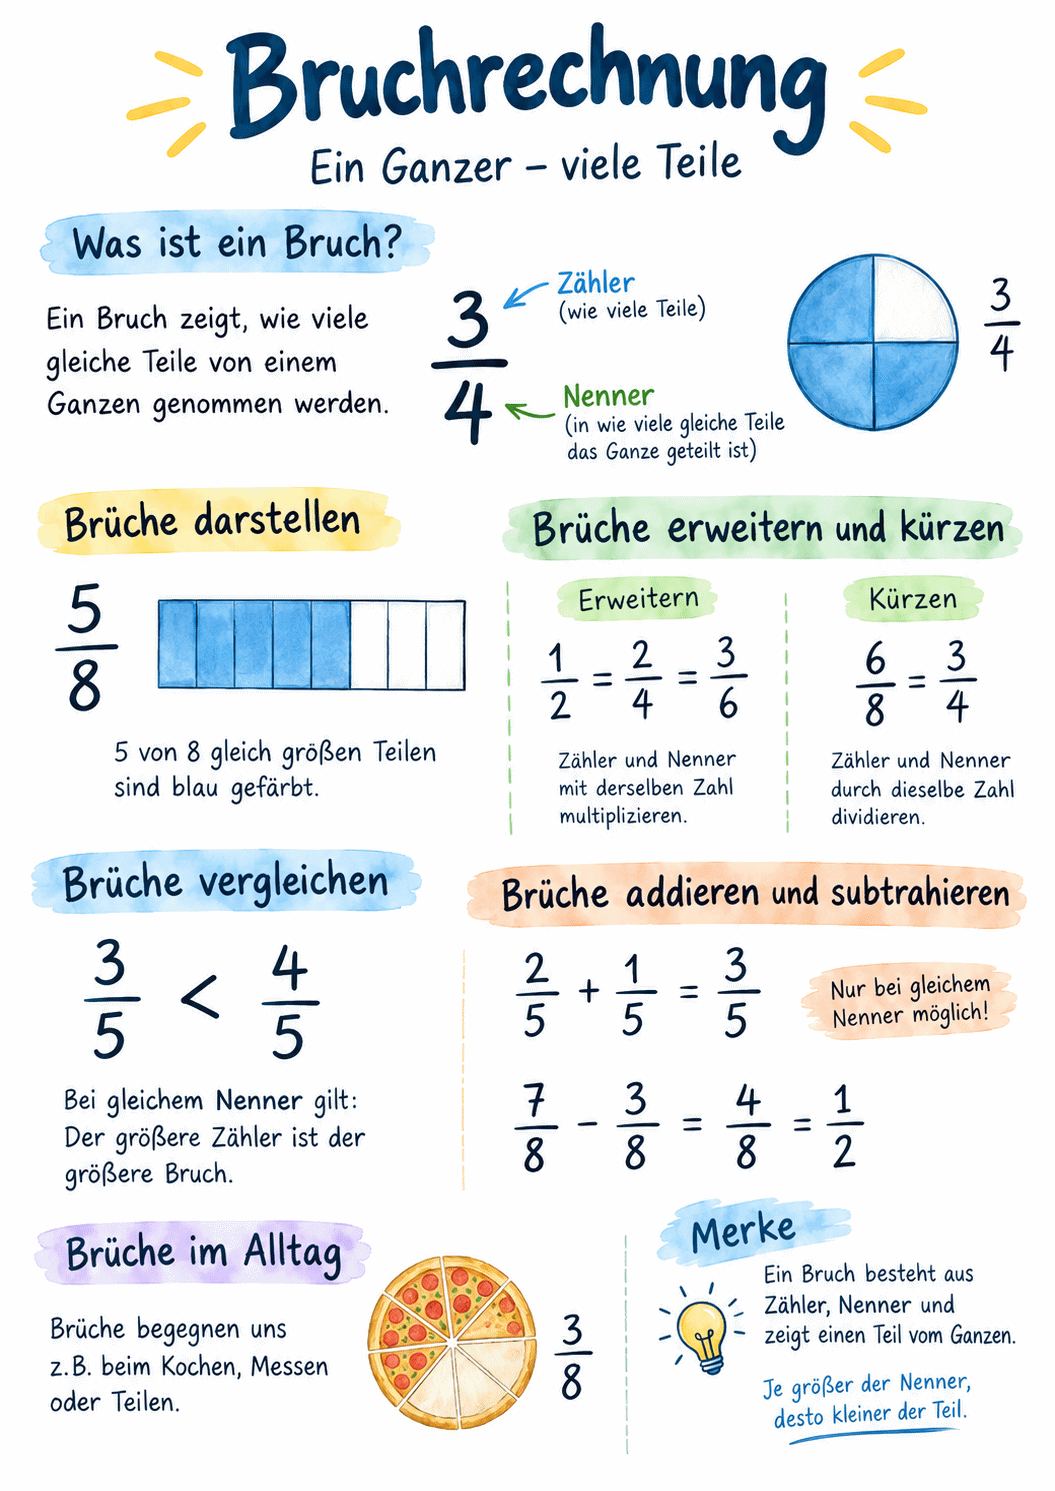 Bruchrechnung
Ein Ganzer – viele Teile
Was ist ein Bruch?
Ein Bruch zeigt, wie viele
gleiche Teile von einem
Ganzen genommen werden.
3/4
Zähler
(wie viele Teile)
Nenner
(in wie viele gleiche Teile
das Ganze geteilt ist)
3/4
Brüche darstellen
5/8
5 von 8 gleich größen Teilen
sind blau gefärbt.
Brüche erweitern und kürzen
Erweitern
1/2 = 2/4 = 3/6
Zähler und Nenner
mit derselben Zahl
multiplizieren.
Kürzen
6/8 = 3/4
Zähler und Nenner
durch dieselbe Zahl
dividieren.
Brüche vergleichen
3/5 < 4/5
Bei gleichem Nenner gilt:
Der größere Zähler ist der
größere Bruch.
Brüche addieren und subtrahieren
2/5 + 1/5 = 3/5
Nur bei gleichem
Nenner möglich!
7/8 – 3/8 = 4/8 = 1/2
Brüche im Alltag
Brüche begegnen uns
z.B. beim Kochen, Messen
oder Teilen.
3/8
Merke
Ein Bruch besteht aus
Zähler, Nenner und
zeigt einen Teil vom Ganzen.
Je größer der Nenner,
desto kleiner der Teil.